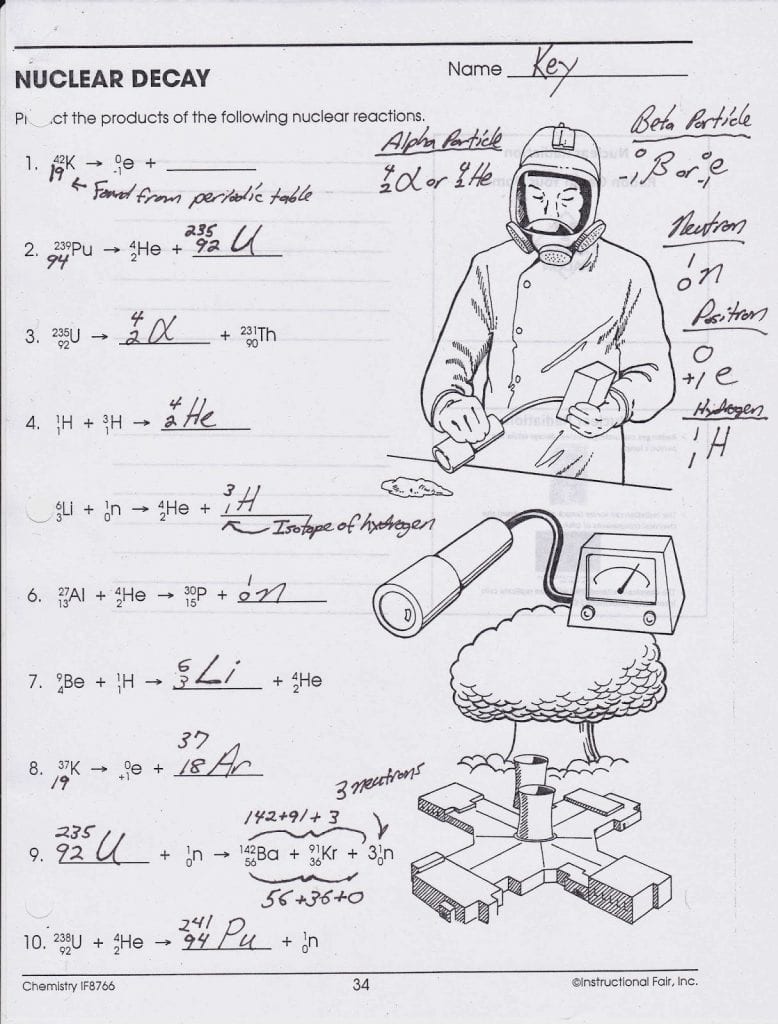 Name Key
NUCLEAR DECAY
Pr ct the products of the following nuclear reactions.
Alpha Particle
⁴₂α or ⁴₂He
Beta Particle
⁰₋₁β or ⁰₋₁e
Neutron
¹₀n
Positron
⁰₊₁e
Hydrogen
¹₁H
1. ⁴²₁₉K → ⁰₋₁e + ________
← Found from periodic table
2. ²³⁹₉₄Pu → ⁴₂He + ²³⁵₉₂U
3. ²³⁵₉₂U → ⁴₂α + ²³¹₉₀Th
4. ¹₁H + ³₁H → ⁴₂He
⁶₃Li + ¹₀n → ⁴₂He + ³₁H
Isotope of hydrogen
6. ²⁷₁₃Al + ⁴₂He → ³⁰₁₅P + ¹₀n
7. ⁹₄Be + ¹₁H → ⁶₃Li + ⁴₂He
8. ³⁷₁₉K → ⁰₊₁e + ³⁷₁₈Ar
3 neutrons
142+91+3
9. ²³⁵₉₂U + ¹₀n → ¹⁴²₅₆Ba + ⁹¹₃₆Kr + 3¹₀n
56+36+0
10. ²³⁸₉₂U + ⁴₂He → ²⁴¹₉₄Pu + ¹₀n
Chemistry IF8766 34 ©Instructional Fair, Inc.